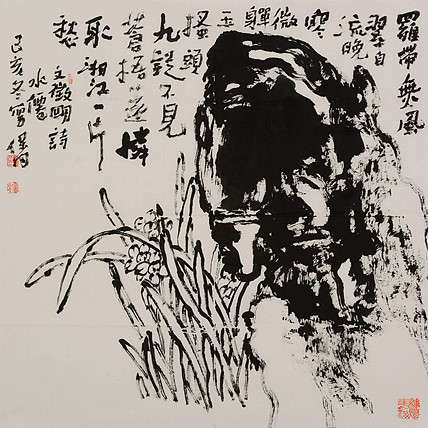 羅帶無風
翠自
流晚
寒
微
嚲
玉
搔頭
九疑不見
蒼梧遠憐
取湘江一片
愁
文徵明詩
水僊
己亥冬寫